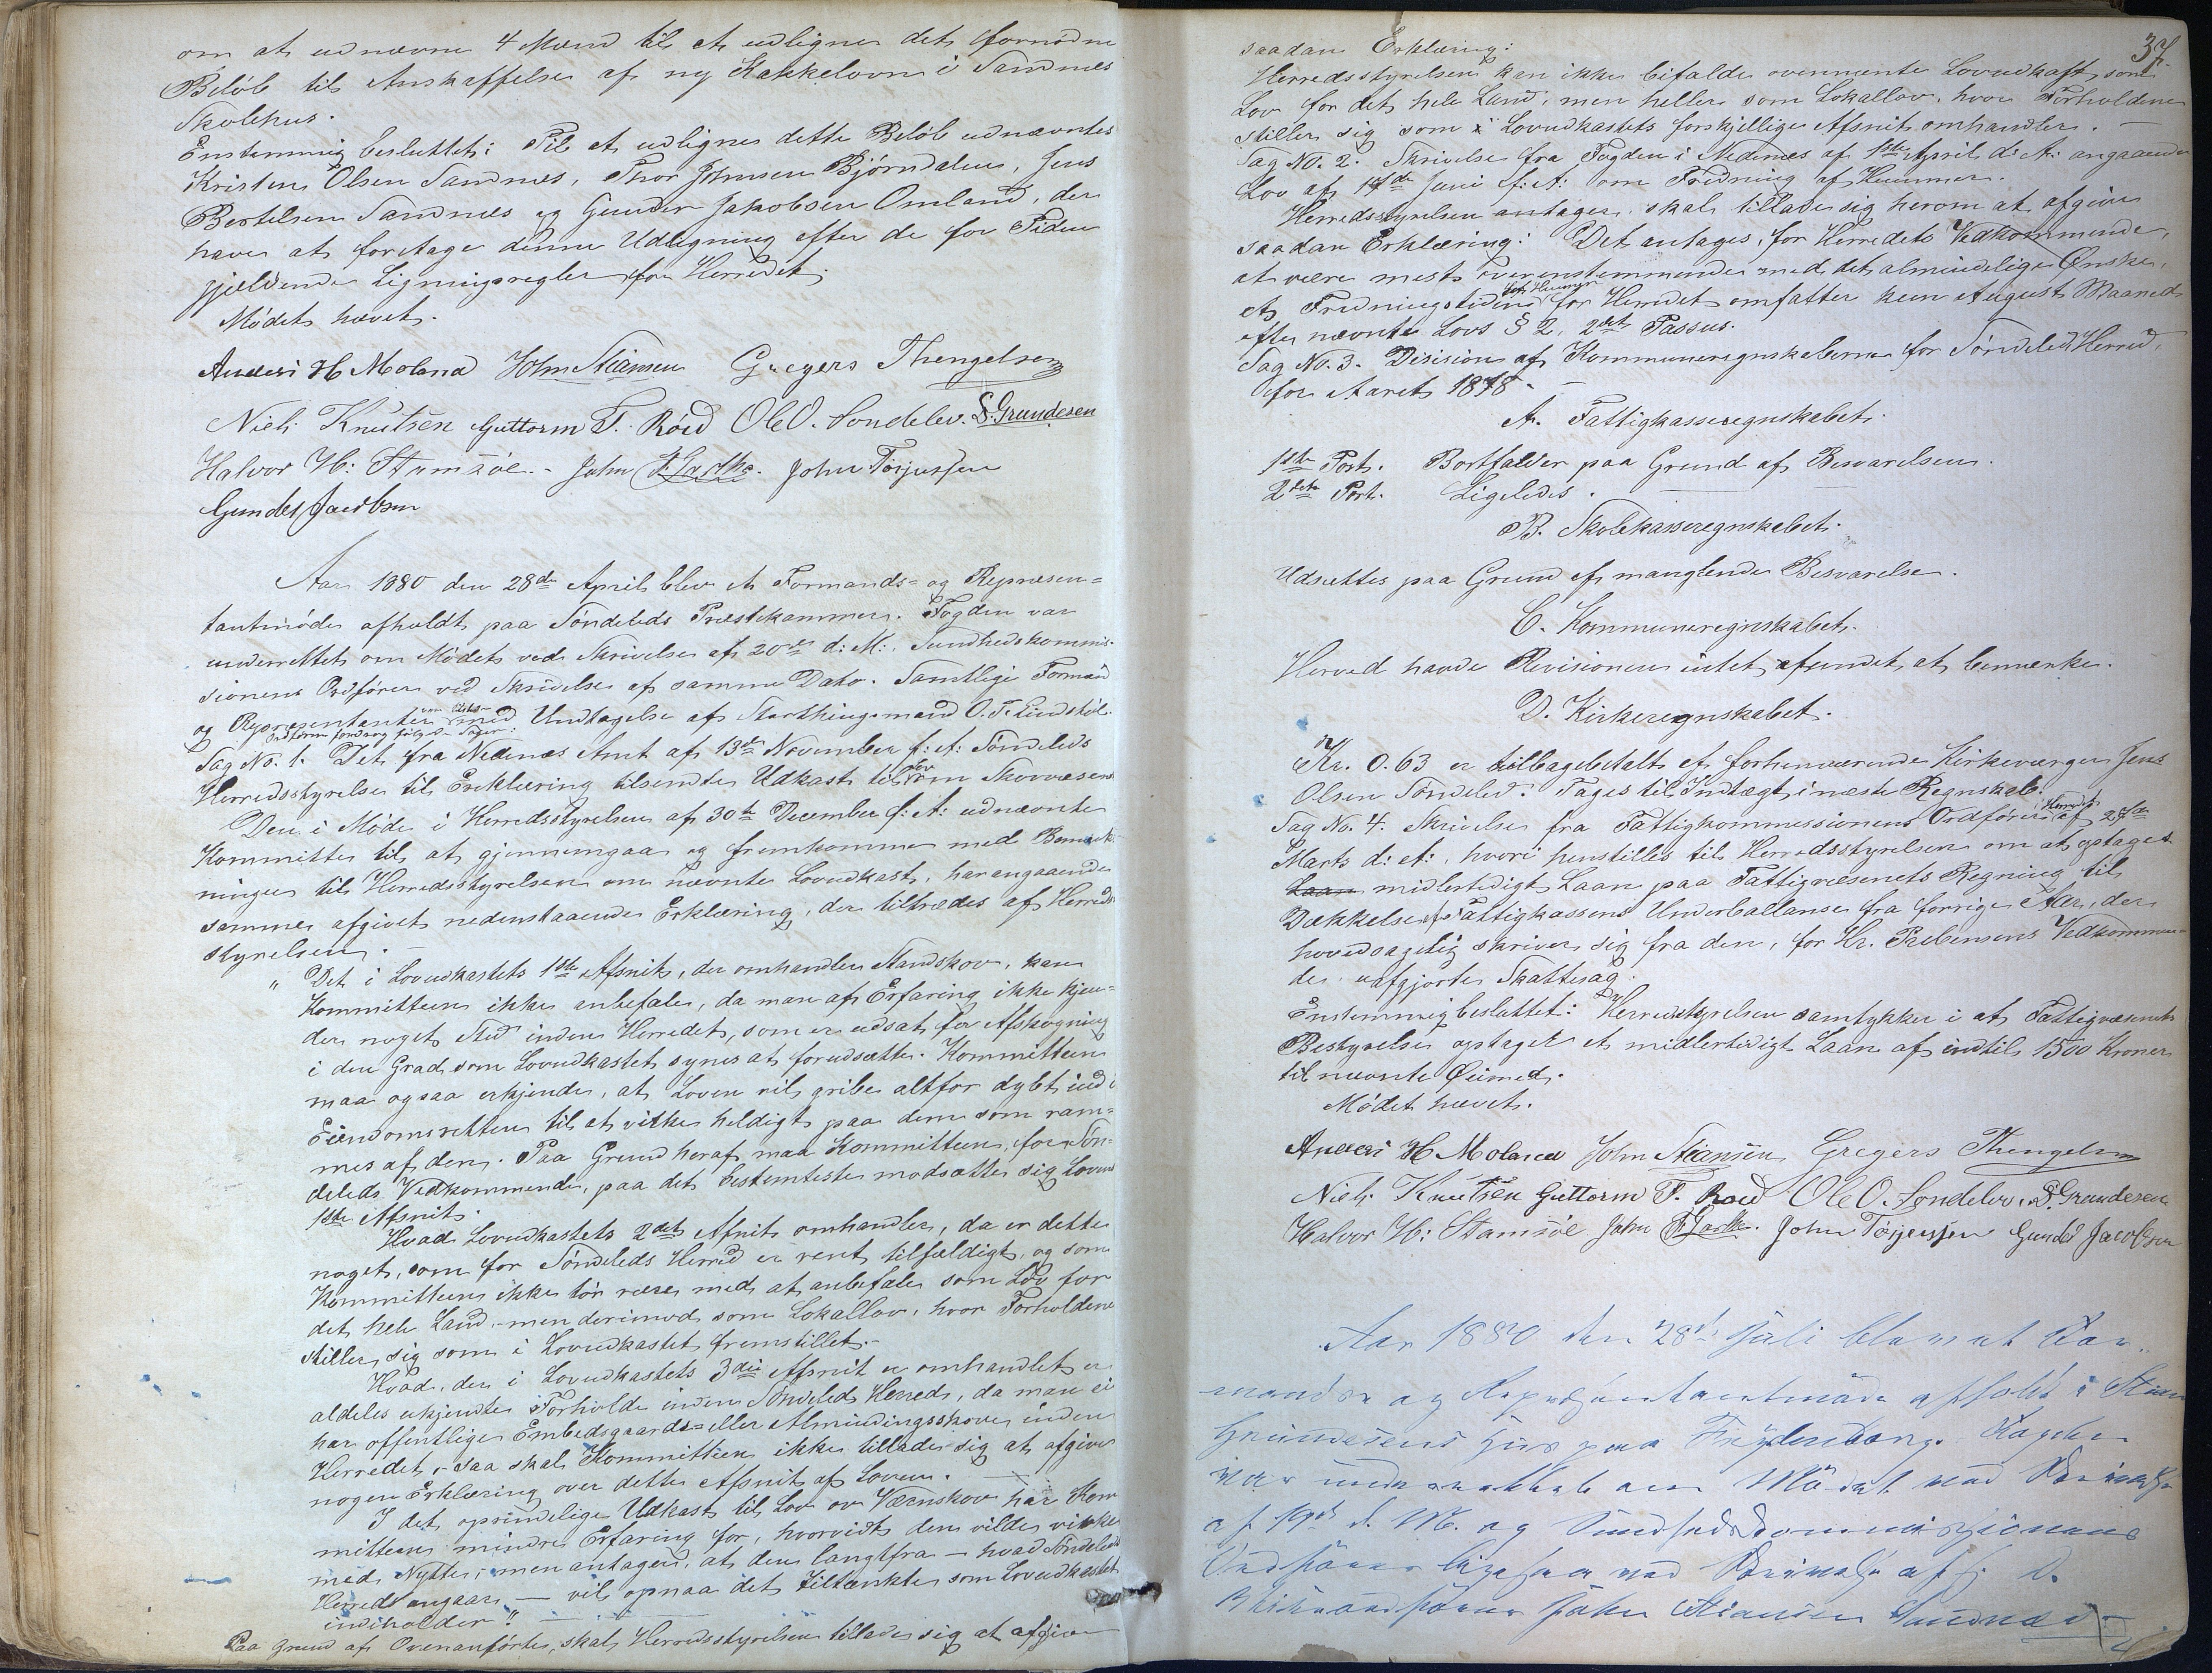 om at udnævne 4 Mænd til at udligne det fornødne
Beløb til Anskaffelse af ny Kakkelovn i Sandnes
Skolehus.
Enstemmig besluttet: Til at udligne dette Beløb udnævntes
Kristen Olsen Sandnes, Thor Johnsen Bjørndalen, Jens
Bertelsen Sandnes og Gunder Jakobsen Omland, der
haver at foretage denne Udligning efter de for Tiden
gjældende Ligningsregler for Herredet.
Mødet hævet.
Anders H Moland John Stiansen Gregers Thengelsen
Niels Knutsen Guttorm T. Røed Ole O. Søndelev. S. Grundesen
Halvor H: Stamsøe. John Torjussen
Gunder Jacobsen
Aar 1880 den 28de April blev et Formands- og Repræsen=
tantmøde afholdt paa Søndeleds Præstekammer. Fogden var
underrettet om Mødet ved Skrivelse af 20de d: M:, Sundhedskommis-
sionens Ordfører ved Skrivelse af samme Dato. Samtlige Formænd
og Repræsentanter med Undtagelse af Storthingsmand O. T. Lindstøl.
Ordføren foredrog følgende Sager:
Sag No. 1. Det fra Nedenæs Amt af 13de November f: A: Søndeleds
Herredsstyrelse til Erklæring tilsendte Udkast til Lov om Skovvæsenet
Den i Møde i Herredsstyrelsen af 30te December f: A: udnævnte
Kommitte til at gjennemgaa og fremkomme med Bemærk-
ninger til Herredsstyrelsen om nævnte Lovudkast, har angaaende
samme afgivet nedenstaaende Erklæring, der tiltrædes af Herreds-
styrelsen.
"Det i Lovudkastets 1ste Afsnit, der omhandler Standskov, kan
Kommitteen ikke anbefale, da man af Erfaring ikke kjen=
der noget Sted inden Herredet, som er udsat for Afskogning
i den Grad som Lovudkastet synes at forudsætte. Kommitteen
maa ogsaa erkjende, at Loven vil gribe altfor dybt ind i
Eiendomsretten til at virke heldigt paa dem som ram=
mes af den. Paa Grund heraf maa Kommitteen, for Søn=
deleds Vedkommende, paa det bestemteste modsætte sig Lovens
1ste Afsnit.
Hvad Lovudkastets 2det Afsnit omhandler, da er dette
noget, som for Søndeleds Herred er rent tilfældigt, og som
Kommitteen ikke tør være med at anbefale som Lov for
det hele Land, men derimod som Lokallov, hvor Forholdene
stiller sig som i Lovudkastet fremstillet.
Hvad, der i Lovudkastets 3die Afsnit er omhandlet er
aldeles ukjendte Forholde inden Søndeleds Herred, da man ei
har offentlige Embedsgaards= eller Almindingsskove inden
Herredet, saa skal Kommitteen ikke tillade sig at afgive
nogen Erklæring over dette Afsnit af Loven.
I det oprindelige Udkast til Lov om Værnskov har Kom
mitteen mindre Erfaring for, hvorvidt den vilde virke
med Nytte, men antager, at den langtfra – hvad Søndeleds
Herred angaar – vil opnaa det tiltænkte som Lovudkastet
indeholder".
Paa Grund af Ovenanførte, skal Herredsstyrelsen tillade sig at afgive
37.
saadan Erklæring:
Herredsstyrelsen kan ikke bifalde ovennævnte Lovudkast som
Lov for det hele Land, men heller som Lokallov, hvor Forholdene
stiller sig som i Lovudkastets forskjellige Afsnit omhandler.
Sag No. 2. Skrivelse fra Fogden i Nedenæs af 1ste April d: A: angaaende
Lov af 14de Juni f: A: om Fredning af Hummer.
Herredsstyrelsen antager, skal tillade sig herom at afgive
saadan Erklæring: Det antages, for Herredets Vedkommende,
at være mest overenstemmende med det almindelige Ønske,
at Fredningstiden for Hummer for Herredet omfatter kun August Maaned
efter nævnte Lovs § 2, 2det Passus.
Sag No. 3. Desision af Kommuneregnskaberne for Søndeled Herred,
for Aaret 1878.
A. Fattigkasseregnskabet.
1ste Post. Bortfalder paa Grund af Besvarelsen.
2den Post. Ligeledes.
B. Skolekasseregnskabet.
Udsættes paa Grund af manglende Besvarelse.
C. Kommuneregnskabet.
Herved havde Revisionen intet afundet at bemærke.
D. Kirkeregnskabet.
Kr. 0.63 er tilbagebetalt af forhenværende Kirkeværge Jens
Olsen Søndeled. Tages til Indtægt i næste Regnskab.
Sag No. 4. Skrivelse fra Fattigkommissionens Ordfører i Herredet af 27de
Marts d: A:, hvori henstilles til Herredsstyrelsen om at optages
Laan midlertidigt Laan paa Fattigvæsenets Regning til
Dækkelse af Fattigkassens Underballanse fra forrige Aar, der
hovedsagelig skriver sig fra den, for Hr. Prebensens Vedkommen-
de uafgjorte Skattesag.
Enstemmig besluttet: Herredsstyrelsen samtykker i at Fattigvæsenets
Bestyrelse optaget et midlertidigt Laan af indtil 1500 Kroner
til nævnte Øiemed.
Mødet hævet.
Anders H Moland John Stiansen Gregers Thengelsen
Niels Knutsen Guttorm T. Røed Ole O. Søndelev. S. Grundesen
Halvor H: Stamsøe John Torjussen Gunder Jacobsen
Aar 1880 den 28de Juli blev et For-
mands og Repræsentantmøde afholdt i Stian
Grundesens Hus paa Fogden
var underrettet om Mødet ved Skrivelse
af d. M. og Sundhedskommissionens
Ordfører ligesaa ved Skrivelse af s. D.
Viceordfører John Stiansen Sandnæs